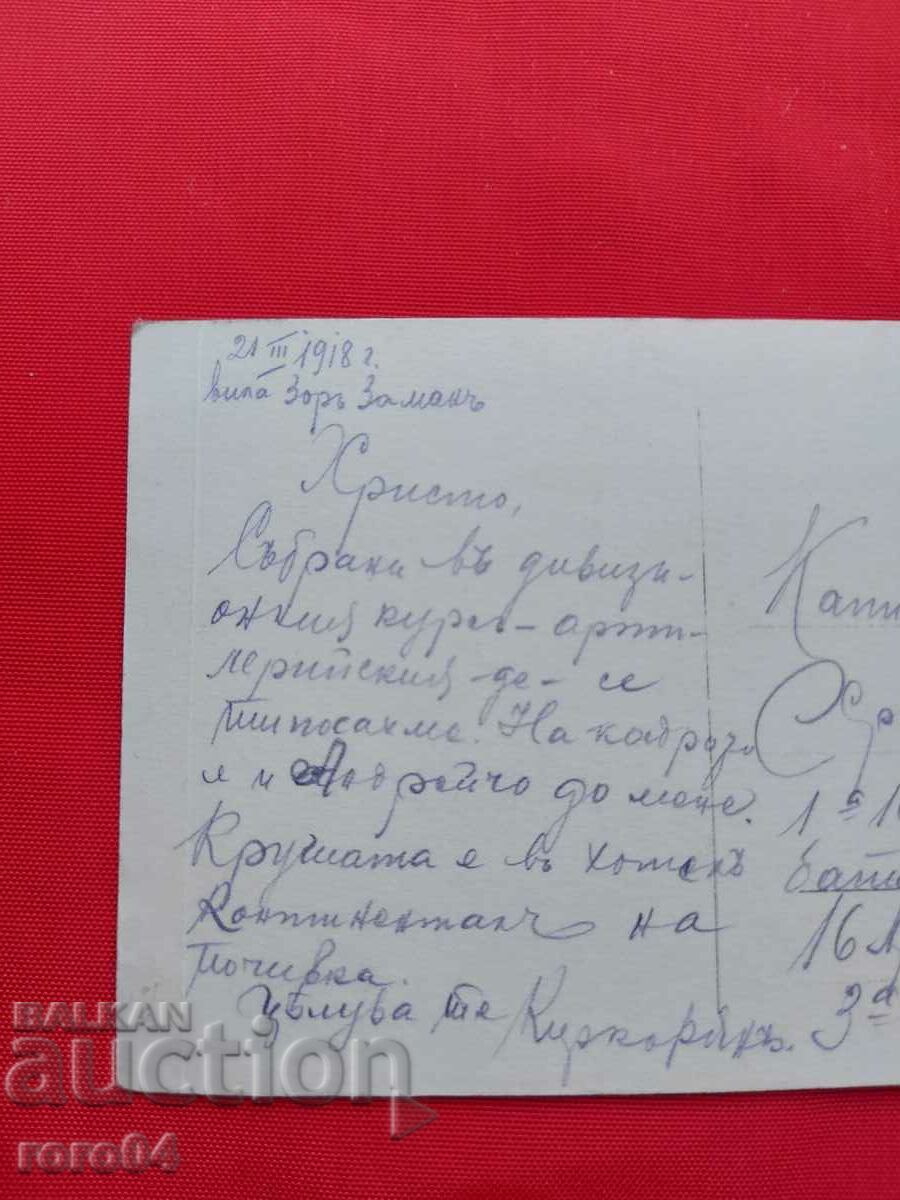 21 III 1918 г.
вила Зоръ Заманъ
Христо,
Събрани въ дивизи-
онния курсъ - арти-
лерийския - де - се
типосахме. На кадръ
е и Андрейчо до мене.
Крушата е въ хотелъ
Континенталъ на
почивка.
Цѣлува те
Капи
1а
16
3а
BALKAN
auction
roro04